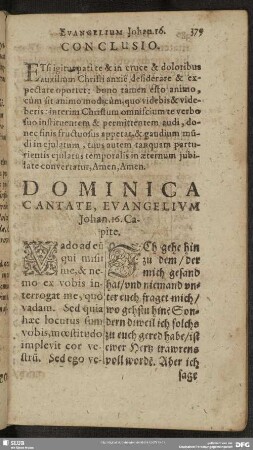 EVANGELIUM Johan. 16. 379
CONCLUSIO.
ETsi igitur pati te & in cruce & doloribus
auxilium Christi anxiè desiderare & ex-
pectare oportet: bono tamen esto animo,
cùm sit animo modicùm, quo videbis & vide-
beris: interim Christum omnisciū te verbo
suo instituentem & præmittentem audi, do-
nec finis fructuosus appetat, & gaudium mū-
di in ejulatum, tuus autem tanquam partu-
rientis ejulatus temporalis in æternum jubi-
late convertatur, Amen, Amen.
DOMINICA
CANTATE, EVANGELIVM
Johan. 16. Ca-
pite.
VAdo ad eū
qui misit
me, & ne-
mo ex vobis in-
terrogat me, quò
vadam. Sed quia
hæc locutus sum
vobis, mœstitudo
implevit cor ve-
strū. Sed ego ve-
ICh gehe hin
zu dem / der
mich gesand
hat / vnd niemand vn-
ter euch fraget mich /
wo gehstu hin? Son-
dern dweil ich solchs
zu euch gered habe / ist
ewer Hertz trawrens
voll worden. Aber ich
sage
SLUB
DFG